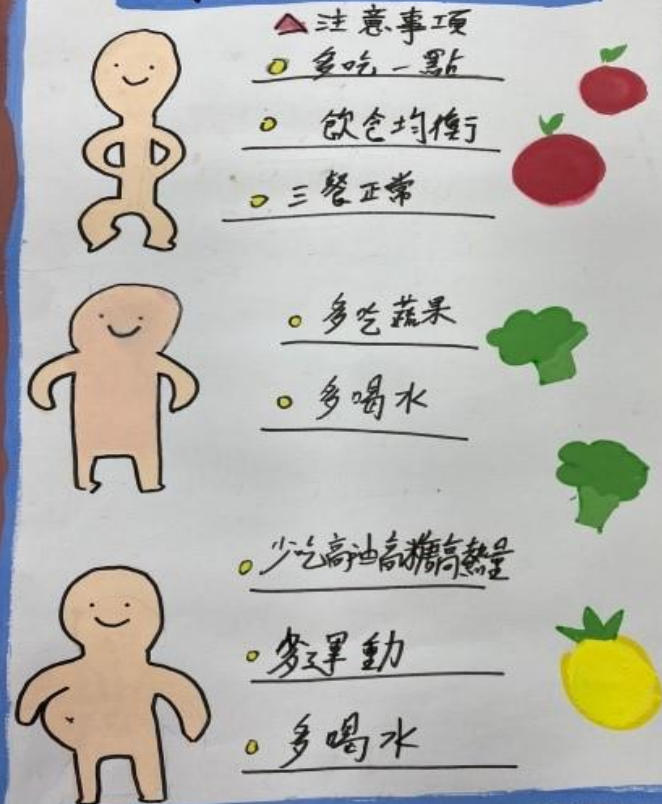 注意事項
多吃一點
飲食均衡
三餐正常
多吃蔬果
多喝水
少吃高油高糖高熱量
多運動
多喝水